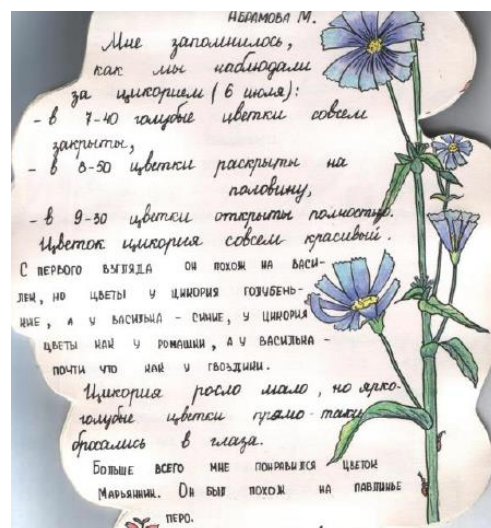 АБРАМОВА М.
Мне запомнилось,
как мы наблюдали
за цикорием (6 июля):
- в 7-40 голубые цветки совсем
закрыты,
- в 8-50 цветки раскрыты на
половину,
- в 9-30 цветки открыты полностью.
Цветок цикория совсем красивый.
С ПЕРВОГО ВЗГЛЯДА ОН ПОХОЖ НА ВАСИ-
ЛЕК, НО ЦВЕТЫ У ЦИКОРИЯ ГОЛУБЕНЬ-
КИЕ, А У ВАСИЛЬКА - СИНИЕ, У ЦИКОРИЯ
ЦВЕТЫ КАК У РОМАШКИ, А У ВАСИЛЬКА -
ПОЧТИ ЧТО КАК У ГВОЗДИКИ.
Цикория росло мало, но ярко-
голубые цветки прямо-таки
бросались в глаза.
БОЛЬШЕ ВСЕГО МНЕ ПОНРАВИЛСЯ ЦВЕТОК
МАРЬЯННИК. ОН БЫЛ ПОХОЖ НА ПАВЛИНЬЕ
ПЕРО.